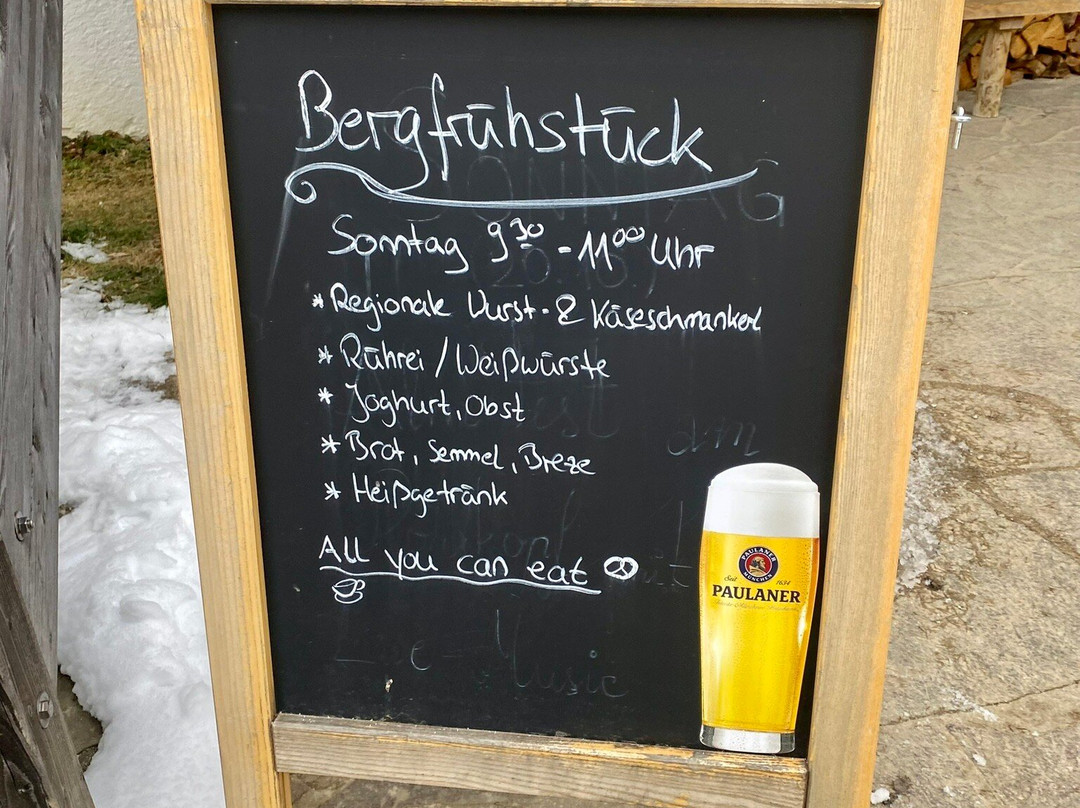 Bergfrühstück
SONNTAG
Sonntag 9³⁰ - 11⁰⁰ Uhr
* Regionale Wurst- & Käseschmankerl
* Rührei / Weißwürste
* Joghurt, Obst
am
* Brot, Semmel, Breze
* Heißgetränk
All you can eat
Music
PAULANER
MÜNCHEN
Seit 1634
PAULANER